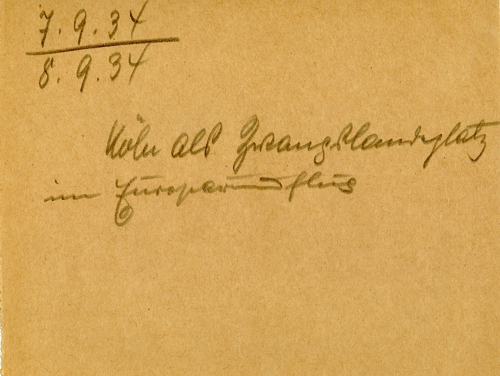 7. 9. 34
8. 9. 34
Köln als Zwangslandeplatz
im Europarundflug